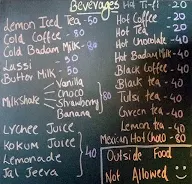 Beverages
Lemon Iced Tea - 50
Cold Coffee - 80
Cold Badam Milk - 80
Lassi - 50
Butter Milk - 50
MilkShake
Vanilla
Choco
Strawberry
Banana
80
Lychee Juice
Kokum Juice
Lemonade
Jal Jeera
40
Hot Coffee - 20
Hot Tea - 20
Hot Chocolate - 40
Hot Badam Milk - 40
Black Coffee - 40
Black tea - 40
Tulsi tea - 40
Green tea - 40
Lemon tea - 40
Mexican Hot Choco - 80
Outside Food
Not Allowed